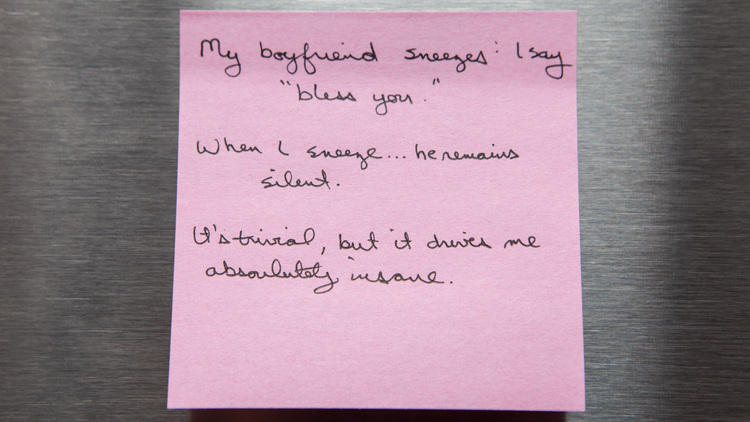 My boyfriend sneezes: I say
"bless you."
When I sneeze... he remains
silent.
It's trivial, but it drives me
absolutely insane.